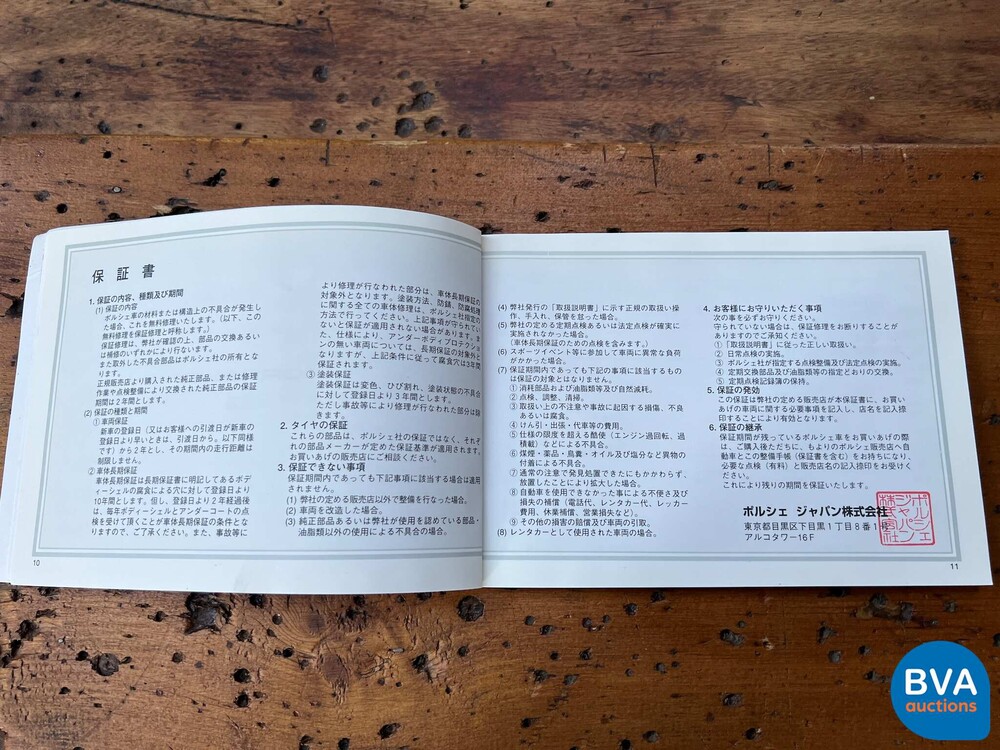 保証書
1. 保証の内容、種類及び期間
(1) 保証の内容
ポルシェ車の材料または構造上の不具合が発生し
た場合、これを無料修理いたします。(以下、この
無料修理を保証修理と呼称します。)
保証修理は、弊社が確認の上、部品の交換あるい
は補修のいずれかにより行ないます。
また取外した不具合部品はポルシェ社の所有とな
ります。
正規販売店より購入された純正部品、または修理
作業や点検整備により交換された純正部品の保証
期間は2年間とします。
(2) 保証の種類と期間
① 車両保証
新車の登録日 (又はお客様への引渡日が新車の
登録日より早いときは、引渡日から。以下同様
です) から2年とし、その期間内の走行距離は
制限しません。
② 車体長期保証
車体長期保証は長期保証書に明記してあるボデ
ィーシェルの腐食による穴に対して登録日より
10年間とします。但し、登録日より2年経過後
は、毎年ボディーシェルとアンダーコートの点
検を受けて頂くことが車体長期保証の条件とな
りますので、ご了承ください。また、事故等に
10
より修理が行なわれた部分は、車体長期保証の
対象外となります。塗装方法、防錆、防腐処理
に関する全ての車体修理は、ポルシェ社指定の
方法で行ってください。上記事項が守られてい
ないと保証が適用されない場合があります。ま
た、仕様により、アンダーボディプロテクショ
ンの無い車両については、長期保証の対象外と
なりますが、上記条件に従って腐食穴は3年間
保証されます。
③ 塗装保証
塗装保証は変色、ひび割れ、塗装状態の不具合
に対して登録日より3年間とします。
ただし事故等により修理が行なわれた部分は除
きます。
2. タイヤの保証
これらの部品は、ポルシェ社の保証ではなく、それぞ
れの部品メーカーが定めた保証基準が適用されます。
お買いあげの販売店にご相談ください。
3. 保証できない事項
保証期間内であっても下記の事項に該当する場合は適用
されません。
(1) 弊社の定める販売店以外で整備を行なった場合。
(2) 車両を改造した場合。
(3) 純正部品あるいは弊社が使用を認めている部品・
油脂類以外の使用による不具合の場合。
(4) 弊社発行の「取扱説明書」に示す正規の取扱い操
作、手入れ、保管を怠った場合。
(5) 弊社の定める定期点検あるいは法定点検が確実に
実施されなかった場合。
(車体長期保証のための点検を含みます。)
(6) スポーツイベント等に参加して車両に異常な負荷
がかかった場合。
(7) 保証期間内であっても下記の事項に該当するもの
は保証の対象とはなりません。
① 消耗部品および油脂類等及び自然減耗。
② 点検、調整、清掃。
③ 取扱い上の不注意や事故に起因する損傷、不良
あるいは腐食。
④ けん引・出張・代車等の費用。
⑤ 仕様の限度を超える酷使 (エンジン過回転、過
積載) などによる不具合。
⑥ 煤煙・薬品・鳥糞・オイル及び塩分など異物の
付着による不具合。
⑦ 通常の注意で発見処置できたにもかかわらず、
放置したことにより拡大した場合。
⑧ 自動車を使用できなかった事による不便さ及び
損失の補償 (電話代、レンタカー代、レッカー
費用、休業補償、営業損失など)。
⑨ その他の損害の賠償及び車両の引取。
(8) レンタカーとして使用された車両の場合。
4. お客様にお守りいただく事項
次の事を必ずお守りください。
守られていない場合は、保証修理をお断りすることが
ありますのでご承知ください。
① 「取扱説明書」に従った正しい取扱い。
② 日常点検の実施。
③ ポルシェ社が指定する点検整備及び法定点検の実施。
④ 定期交換部品及び油脂類等の指定どおりの交換。
⑤ 定期点検記録簿の保持。
5. 保証の発効
この保証は弊社の定める販売店が本保証書に、お買い
あげの車両に関する必要事項を記入し、店名を記入捺
印することにより有効となります。
6. 保証の継承
保証期間が残っているポルシェ車をお買いあげの際
は、ご購入後ただちに、もよりのポルシェ販売店へ自
動車とこの整備手帳 (保証書を含む) をお持ちになり、
必要な点検 (有料) と販売店名の記入捺印をお受けくだ
さい。
これにより残りの期間を保証いたします。
ポルシェ ジャパン株式会社
東京都目黒区下目黒1丁目8番1号
アルコタワー16F
ポルシェ
ジャパン
株式会社
11
BVA
auctions